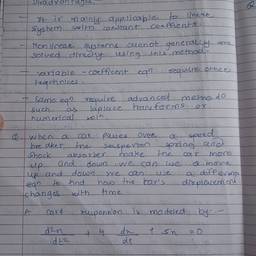 Disadvantages
- It is mainly applicable to linear
system with constant coefficients
- Nonlinear systems cannot generally are
solved directly using this method.
- variable - coefficient eqn require other
techniques.
- Some eqn require advanced methods
such as laplace transforms or
numerical soln
Q. when a car passes over a speed
breaker the suspension spring and
shock absorber make the car move
up and down we can
up and down we can use a differential
eqn to find how the car's displacement
changes with time
A car's suspension is modeled by :-
d²x/dt² + 4 dx/dt + 5x = 0